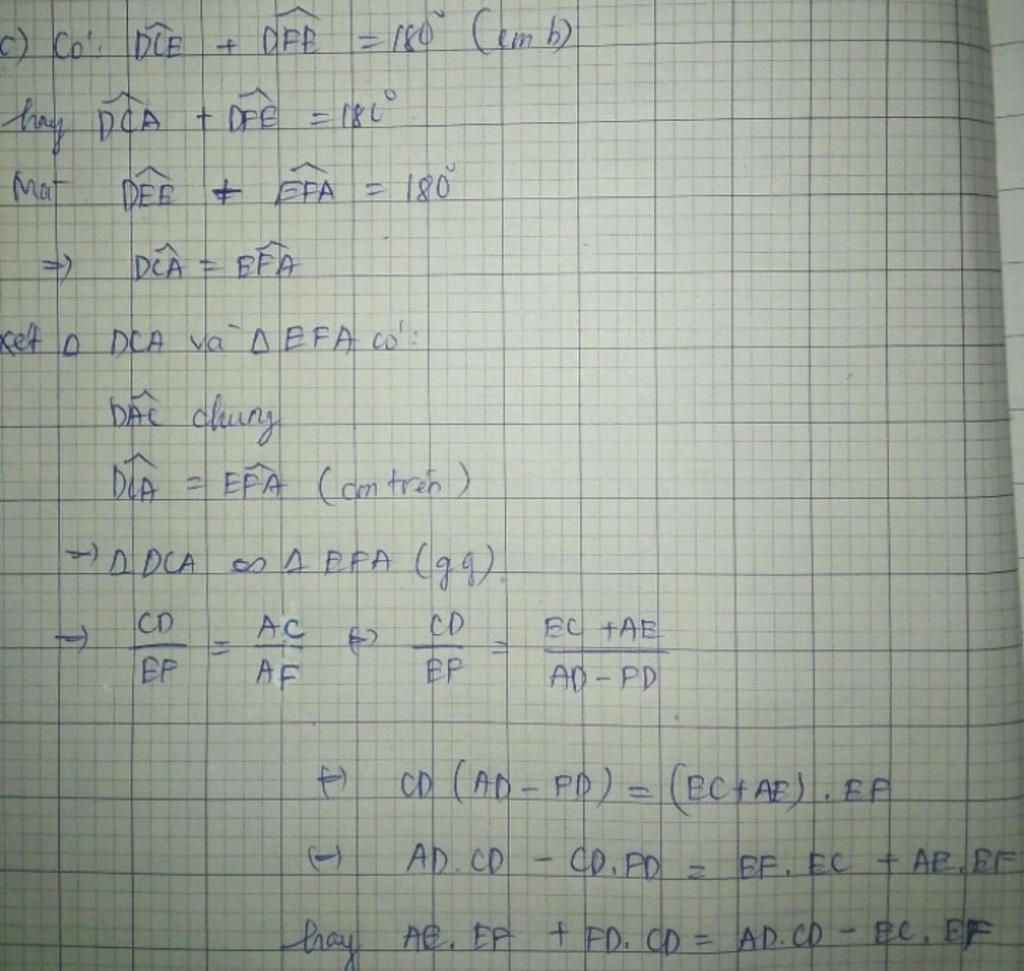 c) Có: DCE + DFE = 180° (cm b)
hay DCA + DFE = 180°
Mat DFE + EFA = 180°
=> DCA = EFA
xét Δ DCA và Δ EFA có:
DAC chung
DCA = EFA (cm trên)
=> Δ DCA ∽ Δ EFA (gg)
=> CD/EF = AC/AF <=> CD/EF = EC + AE/AD - FD
<=> CD (AD - FD) = (EC + AE) . EF
<=> AD.CD - CD.FD = EF.EC + AE.EF
hay AE.EF + FD.CD = AD.CD - EC.EF